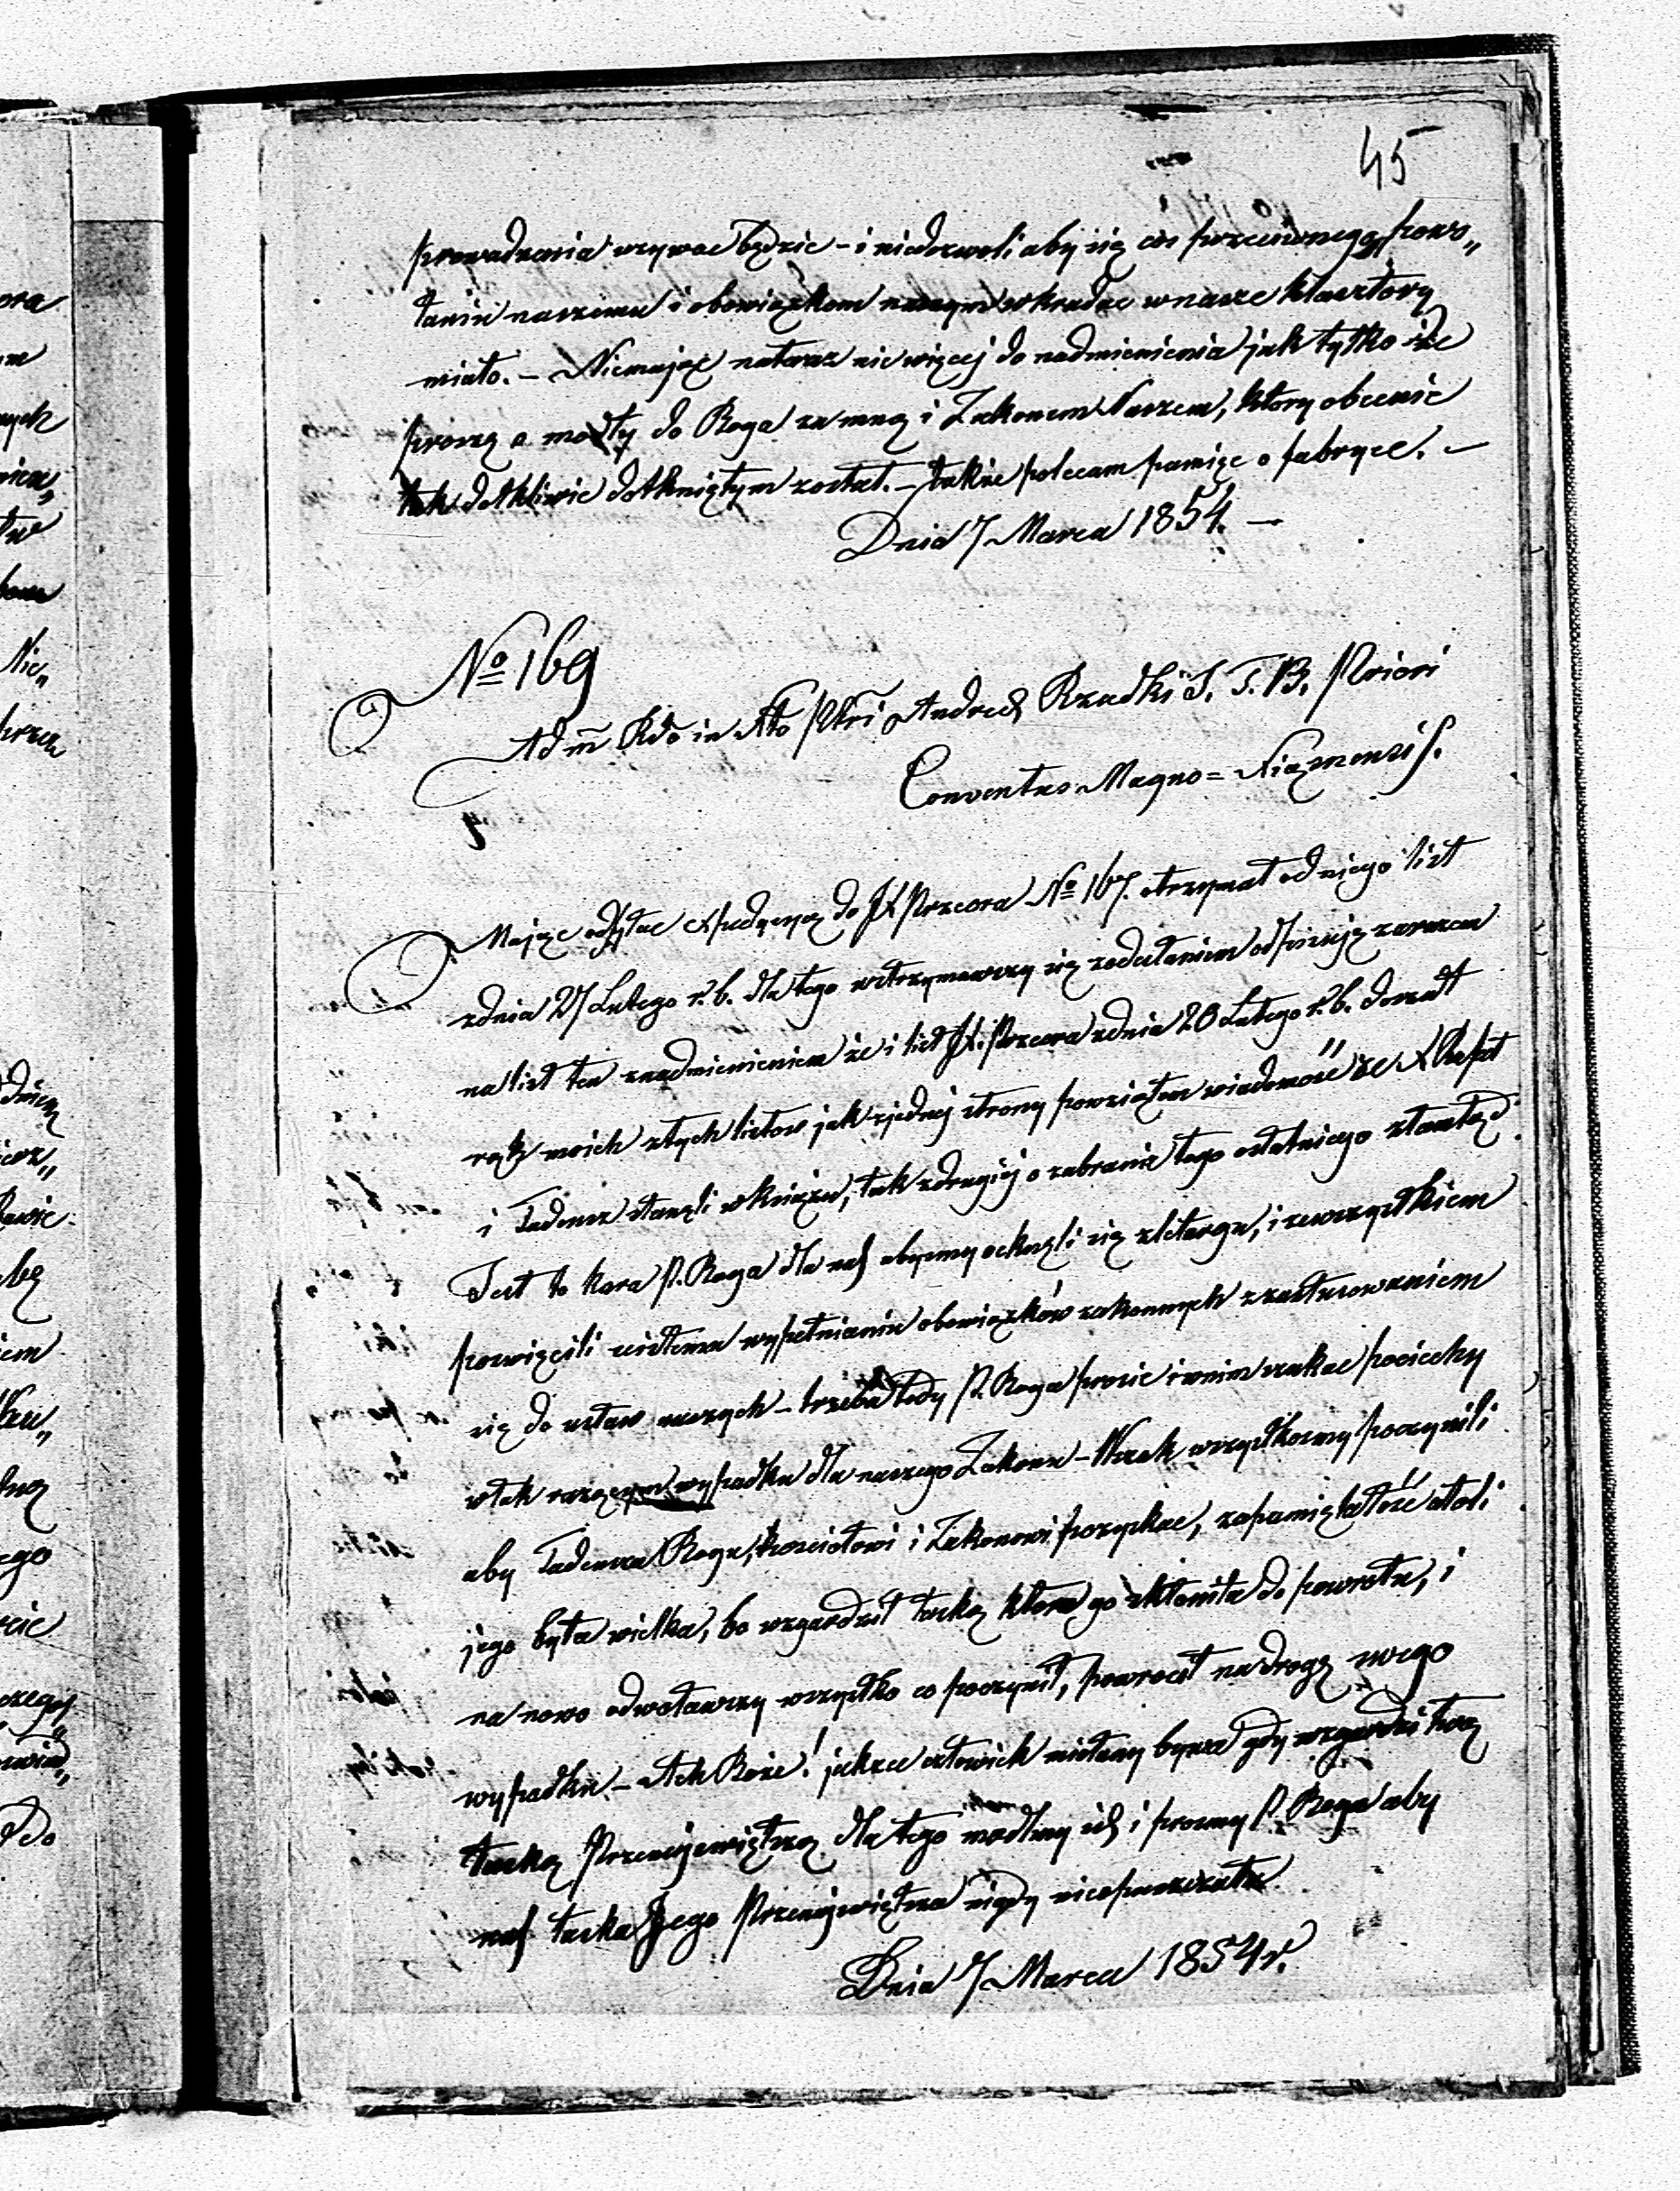 45
prowadzenia wzywac będzie – i niedozwoli aby się cos przeciwnego powo„
łaniu naszemu i obowiązkom naszym wkradac w nasze klasztory
miało. – Niemając nateraz nic więcej do nadmienienia jak tylko że
proszę o modły do Boga za mną i Zakonem Naszem, ktory obecnie
tak dotkliwie dotkniętym został. – także polecam pamięc o fabryce. –
Dnia 7 Marca 1854. –
№ 169
Adm Rdo in Xto Ptri Andreæ Rzadki S. T. B. Priori
Conventus Magno = Xiązmensis.
Mając odesłac expedycyą do JX Przeora № 167. otrzymał od niego list
z dnia 27 Lutego r. b. dla tego wstrzymawszy się z odesłaniem odpisuję zarazem
na list ten z nadmienieniem że i list JX. Przeora z dnia 20 Lutego r. b. doszedł
rąk moich z tych listow jak z jednej strony powziąłem wiadomość że X
i Tadeusz stanęli w Książu, tak z drugiej o zabranie tego ostatniego ztamtąd.
Jest to kara P. Boga dla nas abyśmy ocknęli się z letargu, i ze wszystkiem
poswięcili scisłemu wypełnianiu obowiązków zakonnych z zastosowaniem
się do ustaw naszych – trzeba tedy P. Boga prosic i w nim szukac pociechy
w tak rażącym wypadku dla naszego Zakonu – Wszak wszystkosmy poczynili
aby Tadeusza Bogu, kosciołowi i Zakonowi pozyskac, zapamiętałość atoli
jego była wielka, bo wzgardził łaską ktora go skłoniła do powrotu, i
na nowo odwoławszy wszystko co poczynił, powrocił na drogę swego
wypadku – Ach Boże! jakze człowiek nieszczęsny bywa gdy wzgardzi twą
łaską Przenajswiętszą dla tego modlmy się i prosmy P. Boga aby
nas łaska Jego Przenajswiętsza nigdy nieopuszczała
Dnia 7 Marca 1854 r.